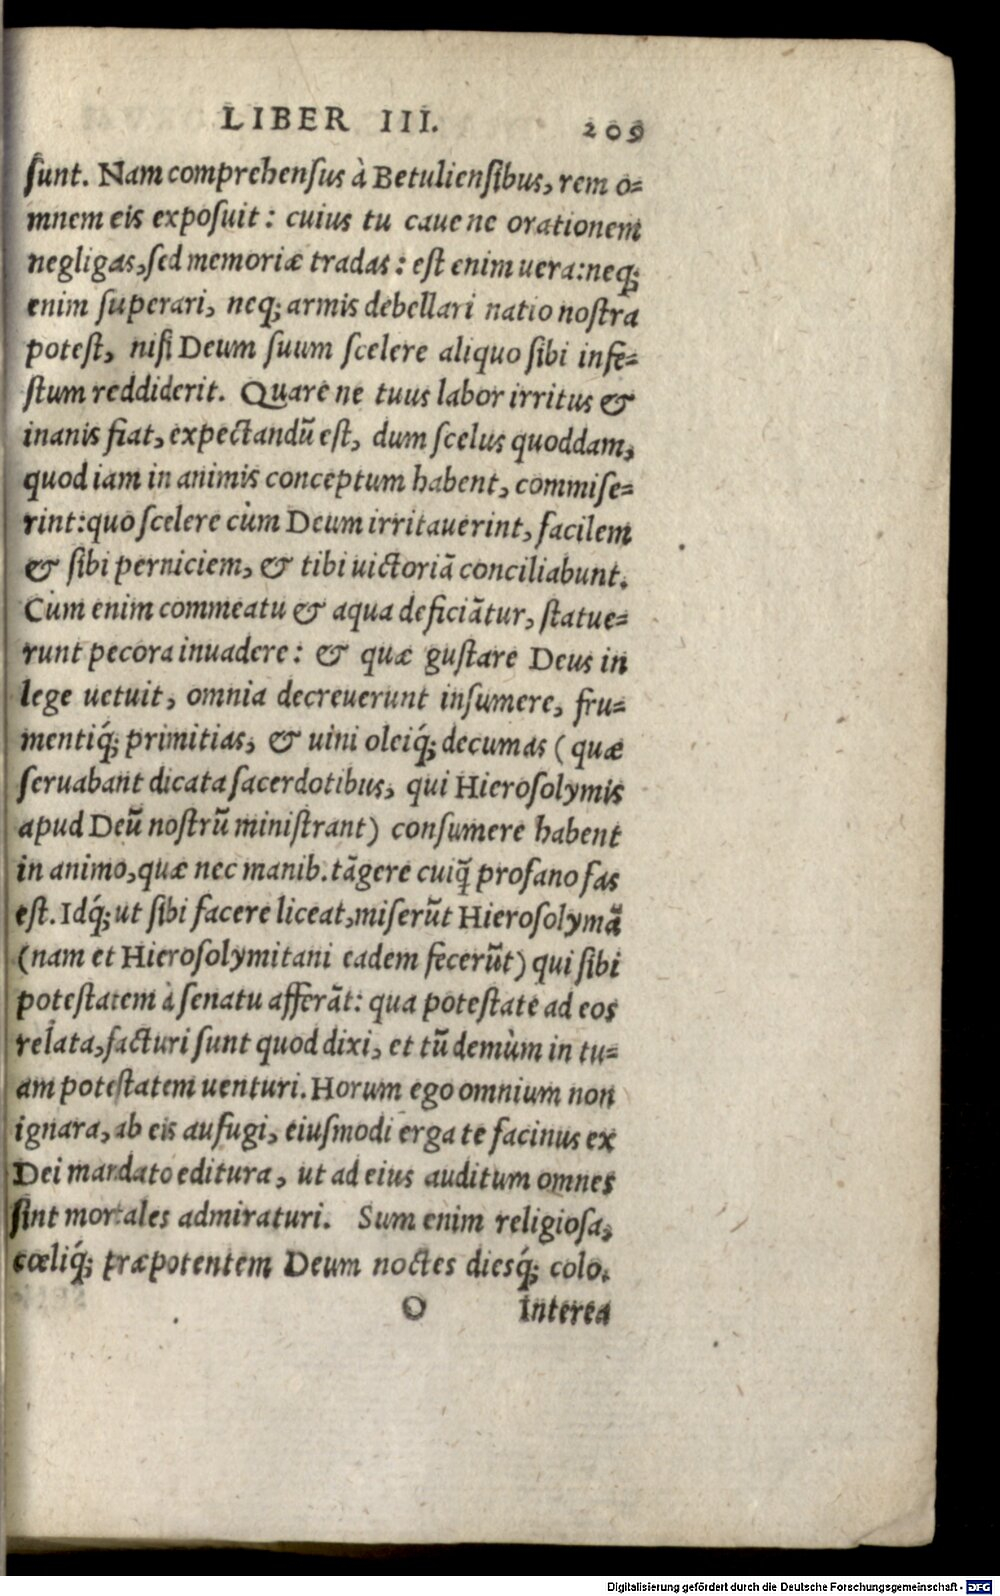 LIBER III. 209
sunt. Nam comprehensus à Betuliensibus, rem o=
mnem eis exposuit: cuius tu caue ne orationem
negligas, sed memoriæ tradas: est enim uera: neq;
enim superari, neq; armis debellari natio nostra
potest, nisi Deum suum scelere aliquo sibi infe=
stum reddiderit. Quare ne tuus labor irritus &
inanis fiat, expectandũ est, dum scelus quoddam,
quod iam in animis conceptum habent, commise=
rint: quo scelere cùm Deum irritauerint, facilem
& sibi perniciem, & tibi uictoriã conciliabunt.
Cùm enim commeatu & aqua deficiãtur, statue=
runt pecora inuadere: & quæ gustare Deus in
lege uetuit, omnia decreuerunt insumere, fru=
mentiq́; primitias, & uini oleiq́; decumas (quæ
seruabant dicata sacerdotibus, qui Hierosolymis
apud Deũ nostrũ ministrant) consumere habent
in animo, quæ nec manib. tãgere cuiq̃ profano fas
est. Idq́; ut sibi facere liceat, miserũt Hierosolymã
(nam et Hierosolymitani eadem fecerũt) qui sibi
potestatem à senatu afferãt: qua potestate ad eos
relata, facturi sunt quod dixi, et tũ demùm in tu=
am potestatem uenturi. Horum ego omnium non
ignara, ab eis aufugi, eiusmodi erga te facinus ex
Dei mandato editura, ut ad eius auditum omnes
sint mortales admiraturi. Sum enim religiosa,
cœliq́; præpotentem Deum noctes diesq́; colo.
O Interea
Digitalisierung gefördert durch die Deutsche Forschungsgemeinschaft - DFG